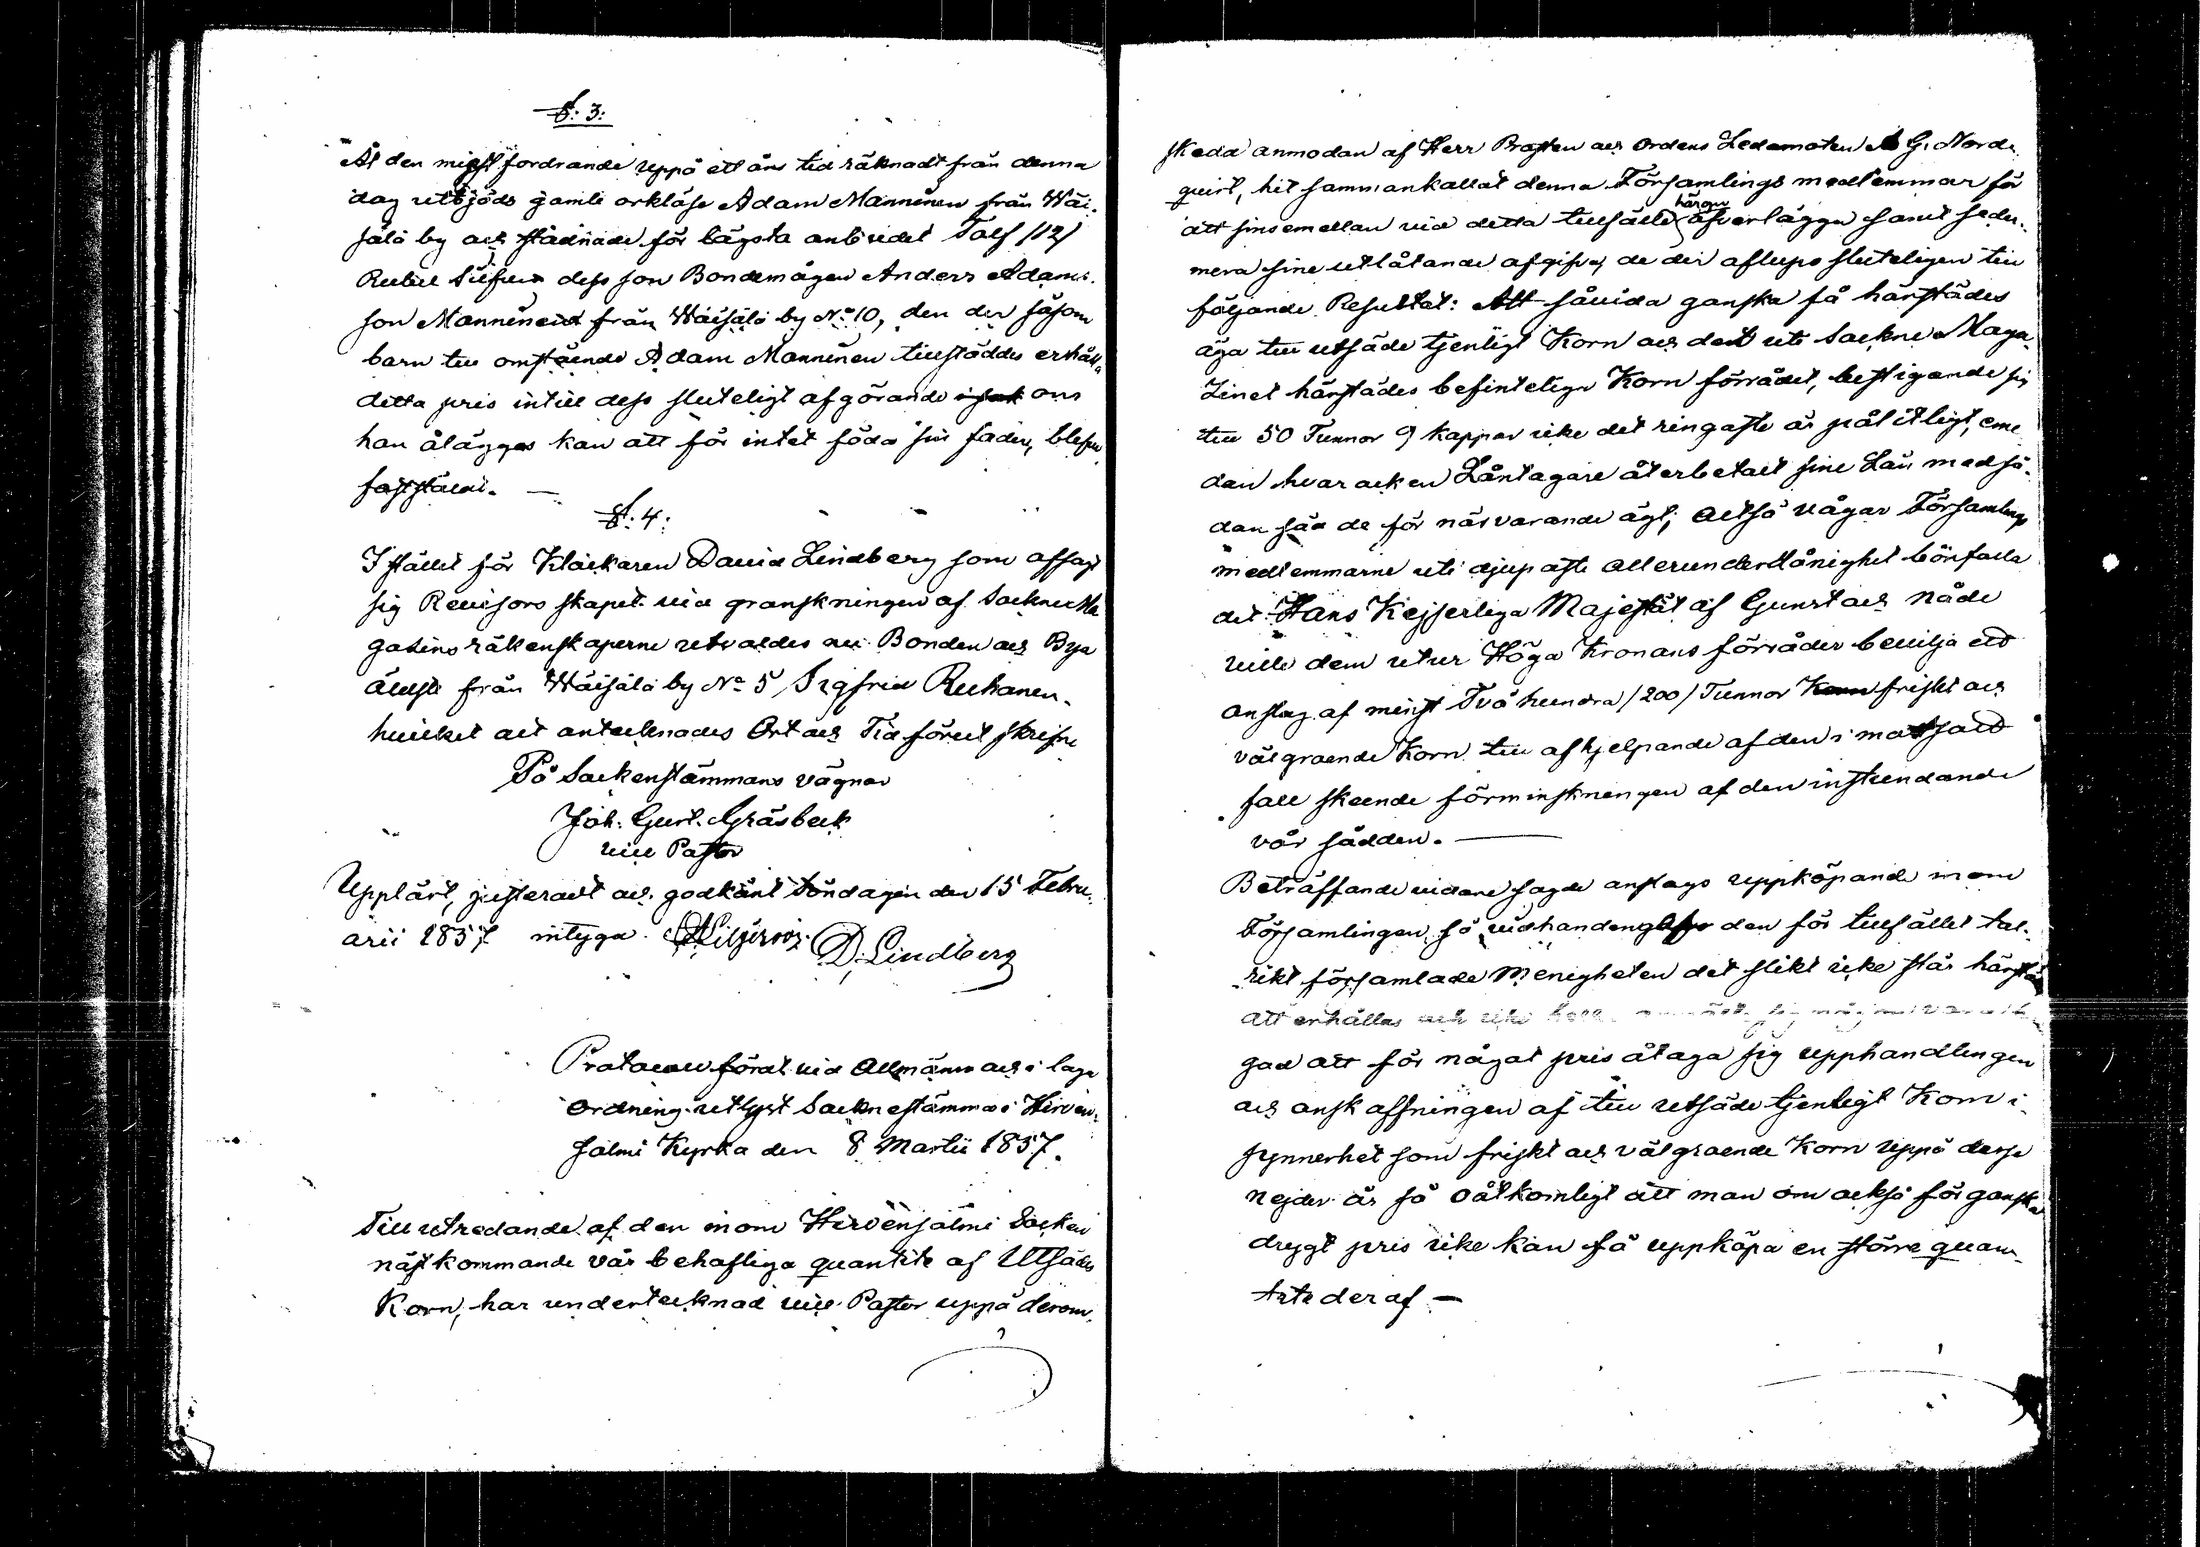 §: 3:
Åt den minst fordrande uppå ett års tid räknadt från denna
dag utbjöds gamle orklöse Adam Manninen från Wäi-
sälä by och stadnade för lägsta anbudet Tolf /12/
Rubel Silfver dess son Bondemågen Anders Adams-
son Manninen från Wäisälä by No 10, den der såsom
barn till omstående Adam Manninen tillstäddes erhålla
detta pris intill dess sluteligt afgörande om
han åläggas kan att för intet föda sin fader, blefve
fastställt. —
§: 4:
I stället för Klockaren David Lindberg som afsagt
sig Revisors skapet vid granskningen af Sockne Ma
gasins räkenskaperne utvaldes nu Bonden och Bya
äldste från Wäisälä by No 5 Sigfrid Ruhanen.
hvilket allt antecknades Ort och Tid förut skrefne
På Sockenstämmans vägnar
Joh. Gust. Gråsbeck
vice Pastor
Uppläst, justeradt och godkänt Söndagen den 15 Febru-
arii 1857 intyga. D. Lindberg
Protocoll fördt vid Allmänn och i laga
ordning utlyst Sockne stämma i Hirven-
salmi Kyrka den 8 Martii 1857.
Till utredande af den inom Hirvensalmi Socken
nästkommande vår behöfliga quantité af Utsädes
Korn, har undertecknad vice Pastor uppå derom
skedd anmodan af Herr Prosten och Ordens Ledamoten A G. Nord-
quist, hit sammankallat denna Församlings medlemmar för
att sinsemellan vid detta tillfälle härom öfverlägga samt seder-
mera sine utlåtande afgifva, de der aflupo sluteligen till
följande Resultat: Att såvida ganska få härstädes
äga till utsäde tjenligt Korn och det uti Sockne Maga-
Zinet härstädes befintelige Korn förrådet, bestigande sig
till 50 Tunnor 9 kappar icke det ringaste är pålitligt, eme
dan hvar och en Låntagare återbetalt sine Lån med så-
dan säd de för närvarande ägt; altså vågar Församlings
medlemmarne uti djupaste allerunderdånighet bönfalla
det Hans Kejserliga Majestät af Gunst och Nåde
ville dem utur Höga Kronans förråder bevilja ett
anslag af minst Två hundra /200/ Tunnor friskt och
väl groende Korn till afhjelpande af den i motsatt
fall skeende förminskningen af den instundande
vår sådden. —
Beträffande vidare sagde anslags uppköpande inom
Församlingen, så den för tillfället tal-
rikt församlade Menigheten det slikt icke står härstä
att erhållas och icke
gad att för något pris åtaga sig upphandlingen
och anskaffningen af till utsäde tjenligt Korn i
synnerhet som friskt och väl groende Korn uppå desse
nejder är så oåtkomligt att man om ock så för ganska
drygt pris icke kan få uppköpa en större quan-
tité deraf —